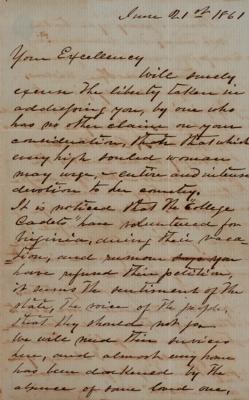 June 21st 1861
Your Excellency
Will surely
excuse the liberty taken in
addressing you, by one who
has no other claim on your
consideration, than that which
every high souled woman
may urge, entire and intense
devotion to her country.
It is noticed that the "College
Cadets" have volunteered for
Virginia, during their vaca
tion, and rumour says you
have refused their petition,
it seems the sentiment of the
state, the voice of the people,
that they should not go.
We will need their services
here, and almost every home
has been darkened by the
absence of some loved one,